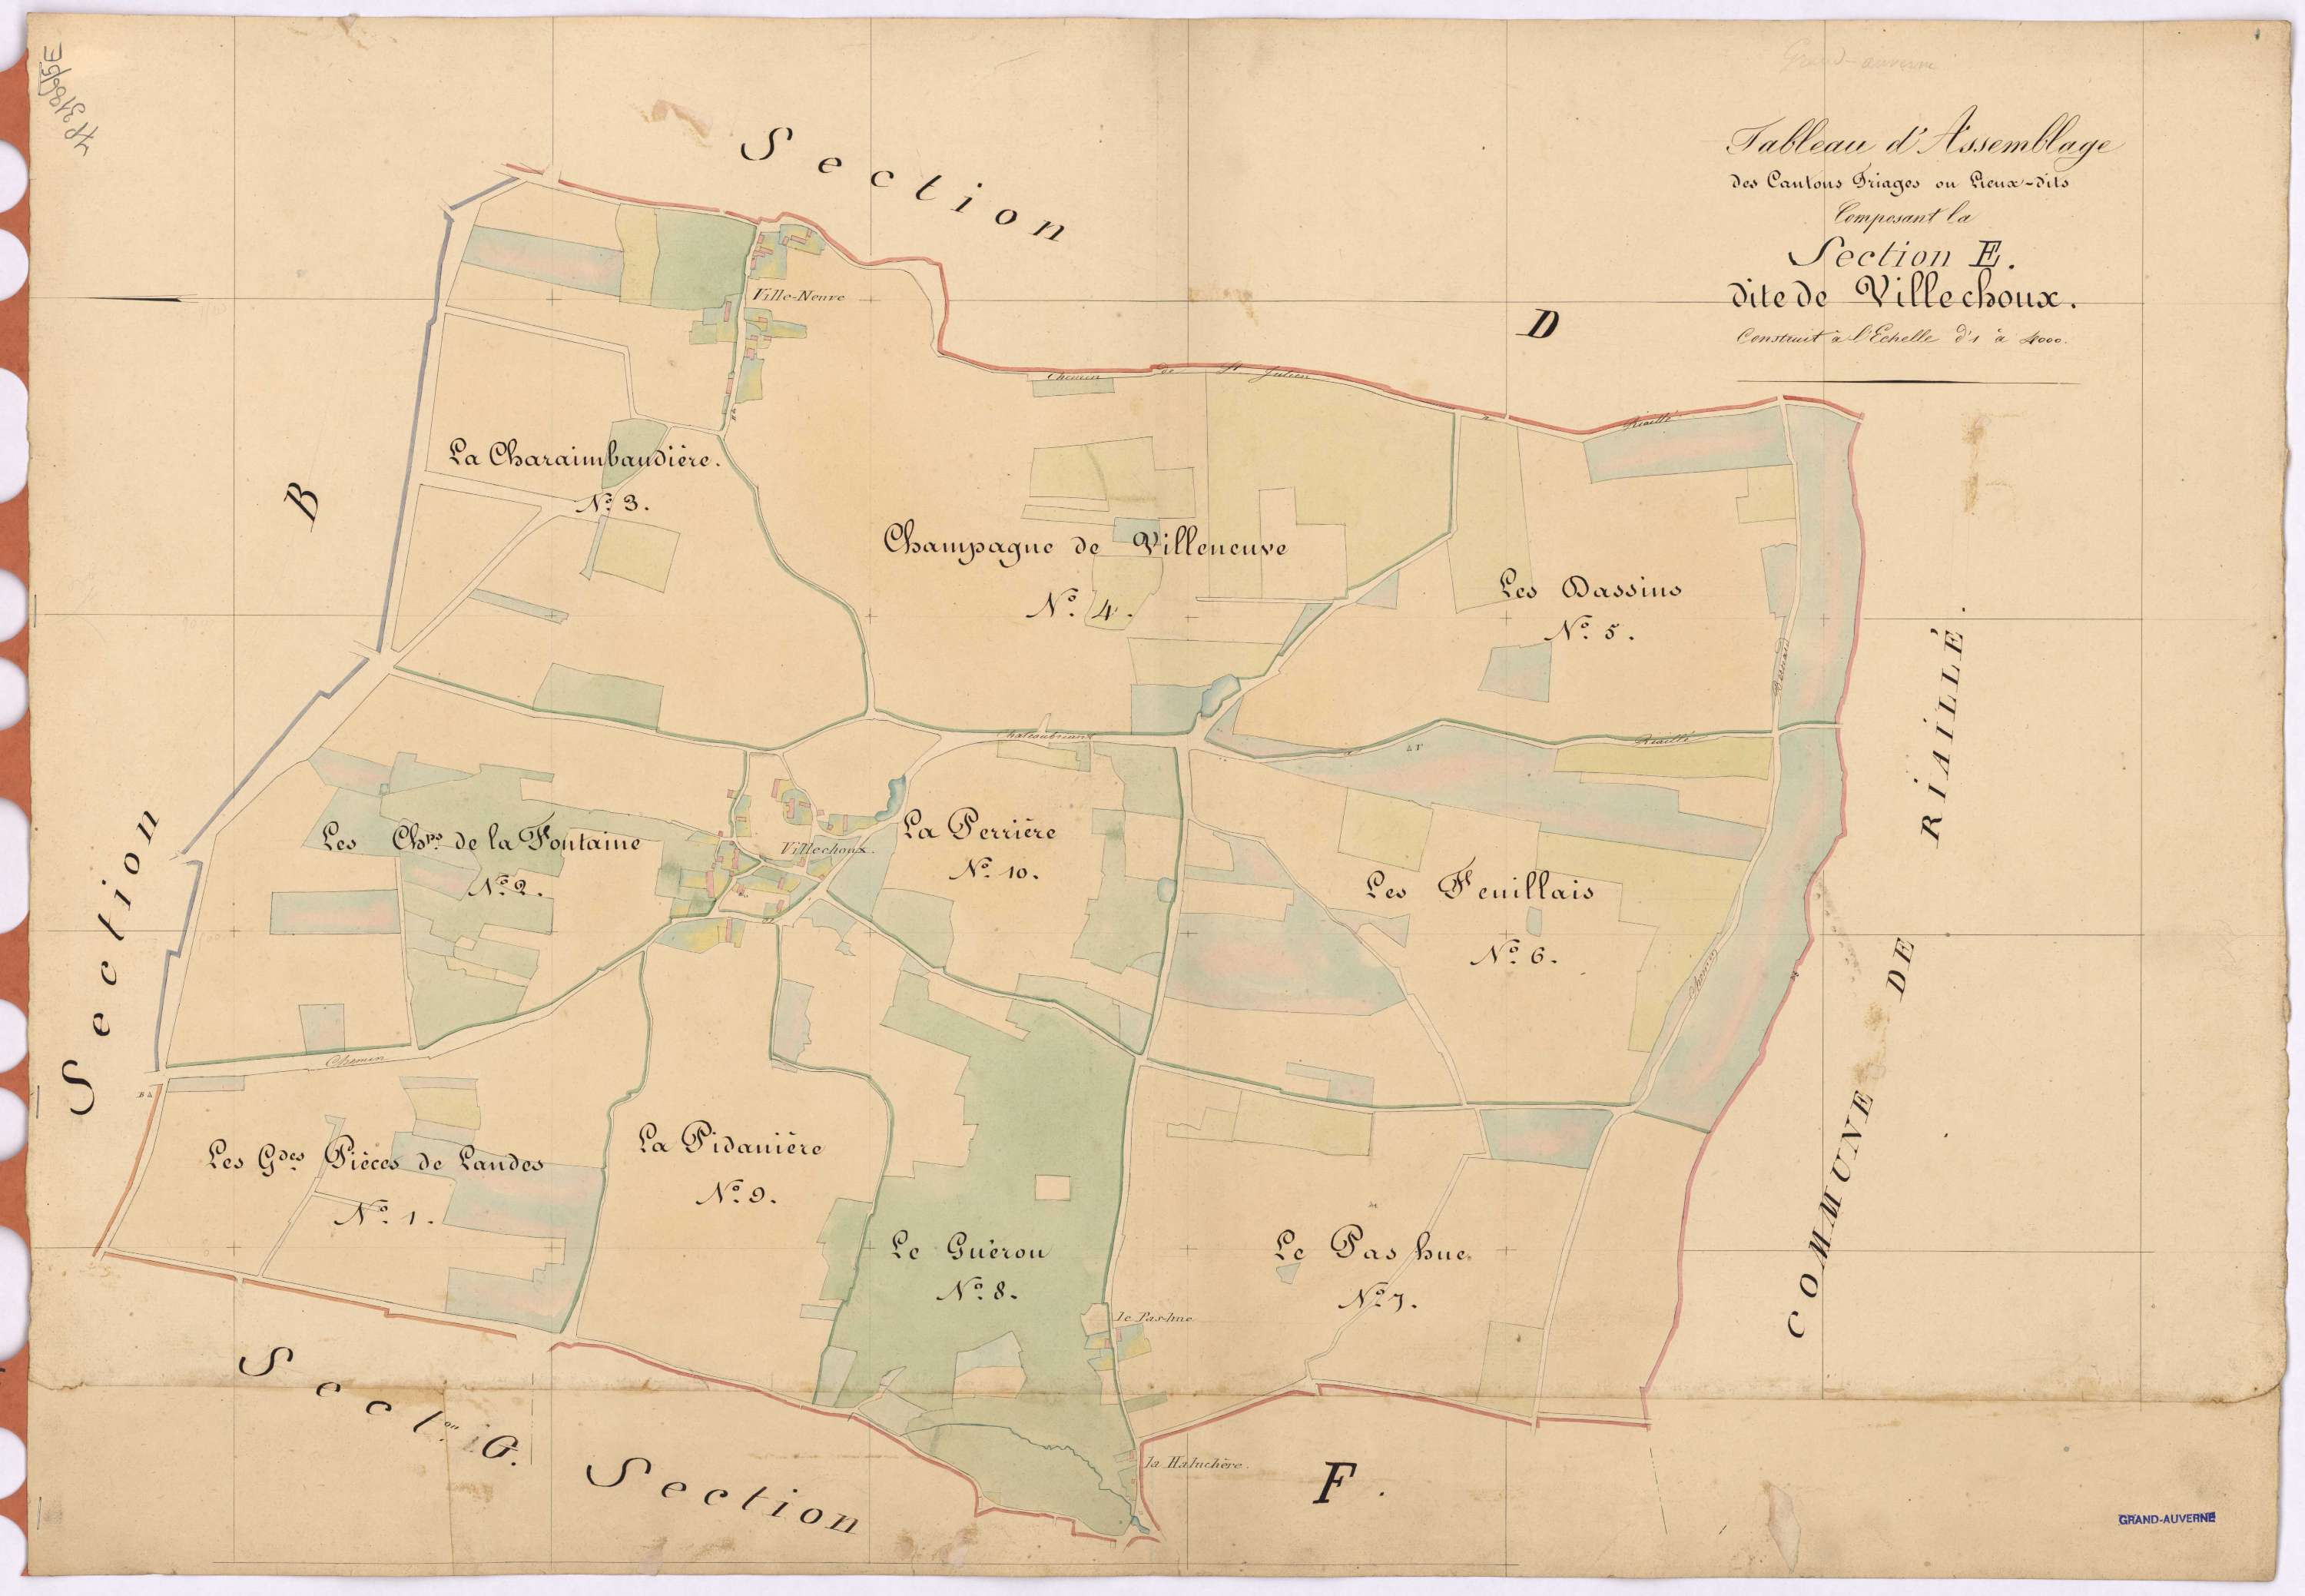 Grand-auverne
Tableau d'Assemblage
des Cantons Triages ou Lieux-dits
Composant la
Section E.
dite de Villechoux.
Construit à l'Echelle d'1 à 4000.
Section
D
B
Section
Ville-Neuve
Chemin de St Julien à Riaillé
La Charaimbaudière.
Nº 3.
Champagne de Villeneuve
Nº 4.
Les Dassins
Nº 5.
COMMUNE DE RIAILLÉ.
Chateaubriant à Riaillé
Les Chps de la Fontaine
Nº 2.
Villechoux.
La Perrière
Nº 10.
Les Feuillais
Nº 6.
Chemin
Chemin
Les Gdes Pièces de Landes
Nº 1.
La Pidanière
Nº 9.
Le Guérou
Nº 8.
Le Pas hue
Nº 7.
le Pas-hue
la Haluchère.
Secton G.
Section
F.
GRAND-AUVERNE